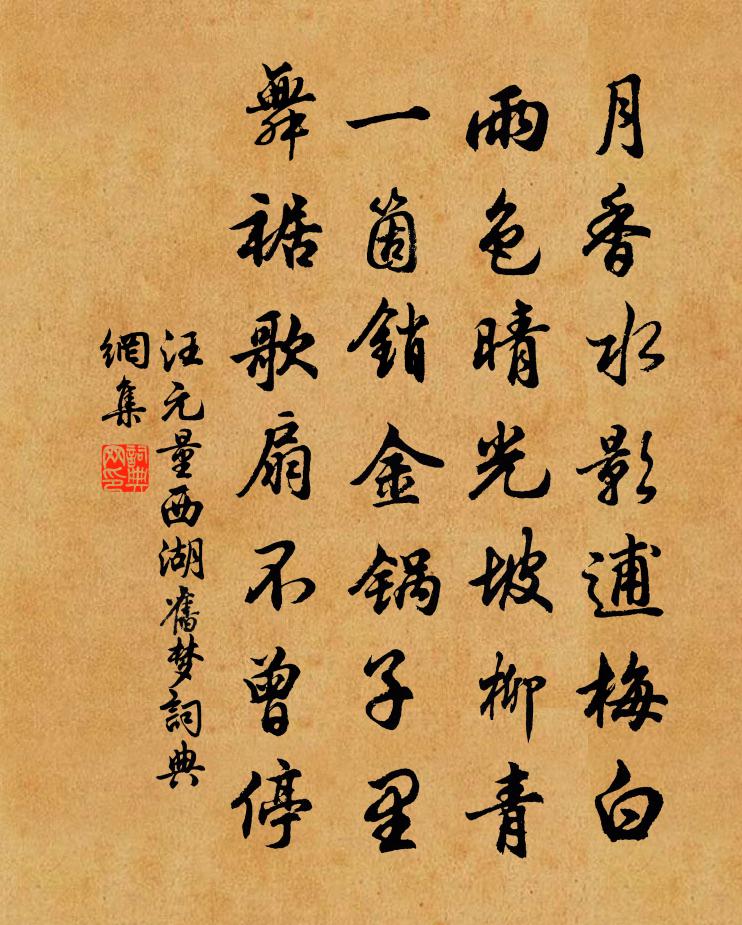 月香水影逋梅白
雨色晴光坡柳青
一箇銷金锅子里
舞裾歌扇不曾停
汪元量西湖舊梦詞典
網集
詞典
网印